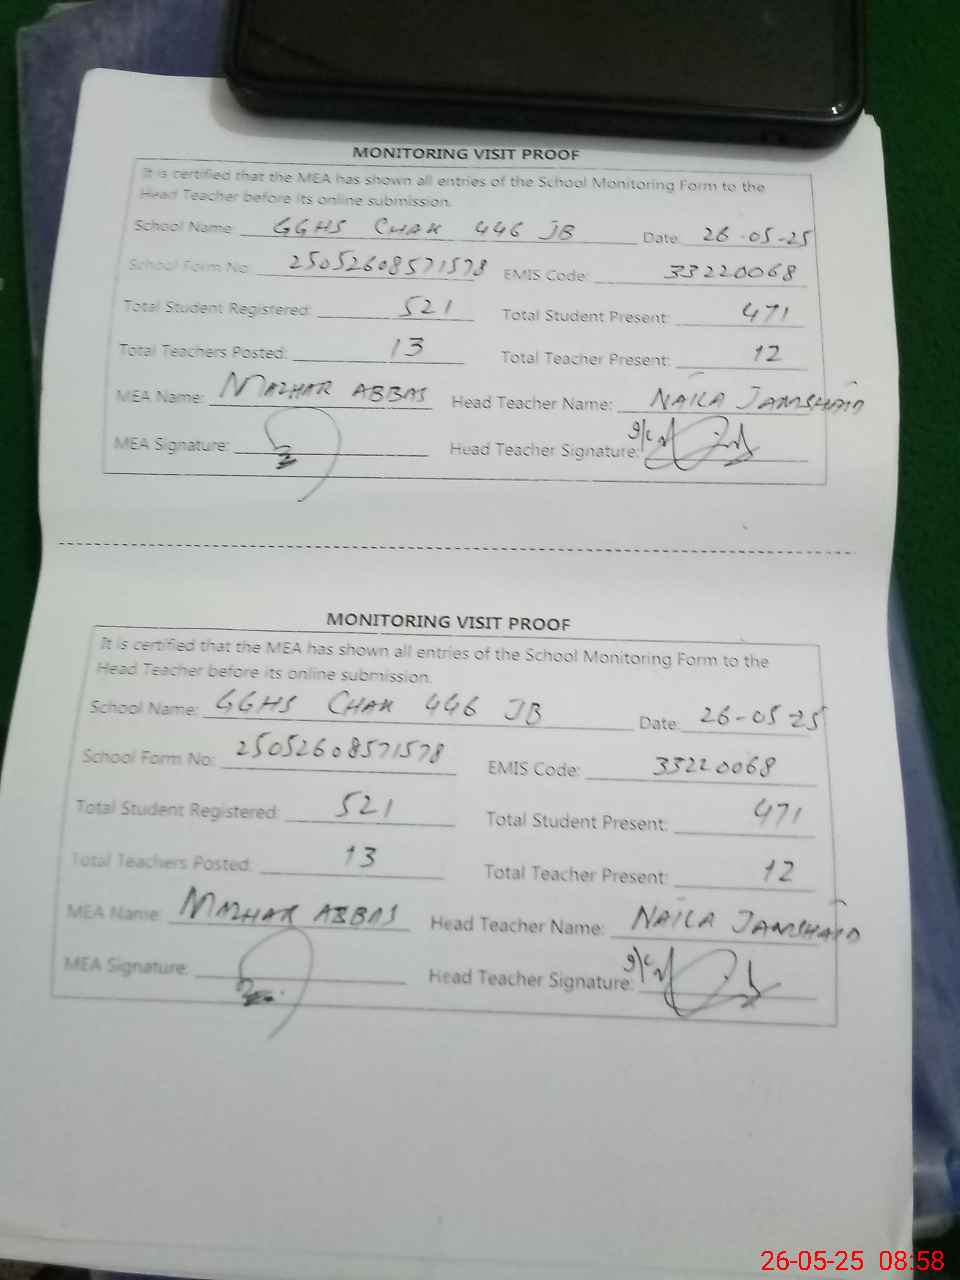 MONITORING VISIT PROOF
It is certified that the MEA has shown all entries of the School Monitoring Form to the
Head Teacher before its online submission.
School Name: GGHS CHAK 446 JB Date: 26-05-25
School Form No: 25052608571578 EMIS Code: 33220068
Total Student Registered: 521 Total Student Present: 471
Total Teachers Posted: 13 Total Teacher Present: 12
MEA Name: MAZHAR ABBAS Head Teacher Name: NAILA JAMSHAID
MEA Signature: Head Teacher Signature:
MONITORING VISIT PROOF
It is certified that the MEA has shown all entries of the School Monitoring Form to the
Head Teacher before its online submission.
School Name: GGHS CHAK 446 JB Date: 26-05-25
School Form No: 25052608571578 EMIS Code: 33220068
Total Student Registered: 521 Total Student Present: 471
Total Teachers Posted: 13 Total Teacher Present: 12
MEA Name: MAZHAR ABBAS Head Teacher Name: NAILA JAMSHAID
MEA Signature: Head Teacher Signature:
26-05-25 08:58